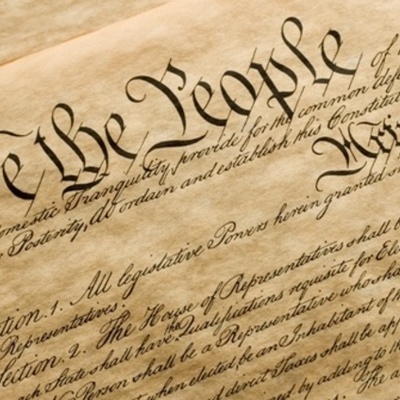 e the People of
omestic Tranquility, provide for the common def
Posterity, do ordain and establish this Constitut
Arti
tion. 1. All legislative Powers herein granted s
Representatives.
Section. 2. The House of Representatives shall b
ach State shall have the Qualifications requisite for Ele
No Person shall be a Representative who sha
not when elected, be an Inhabitant of t
and direct Taxes shall be ap
by adding to th